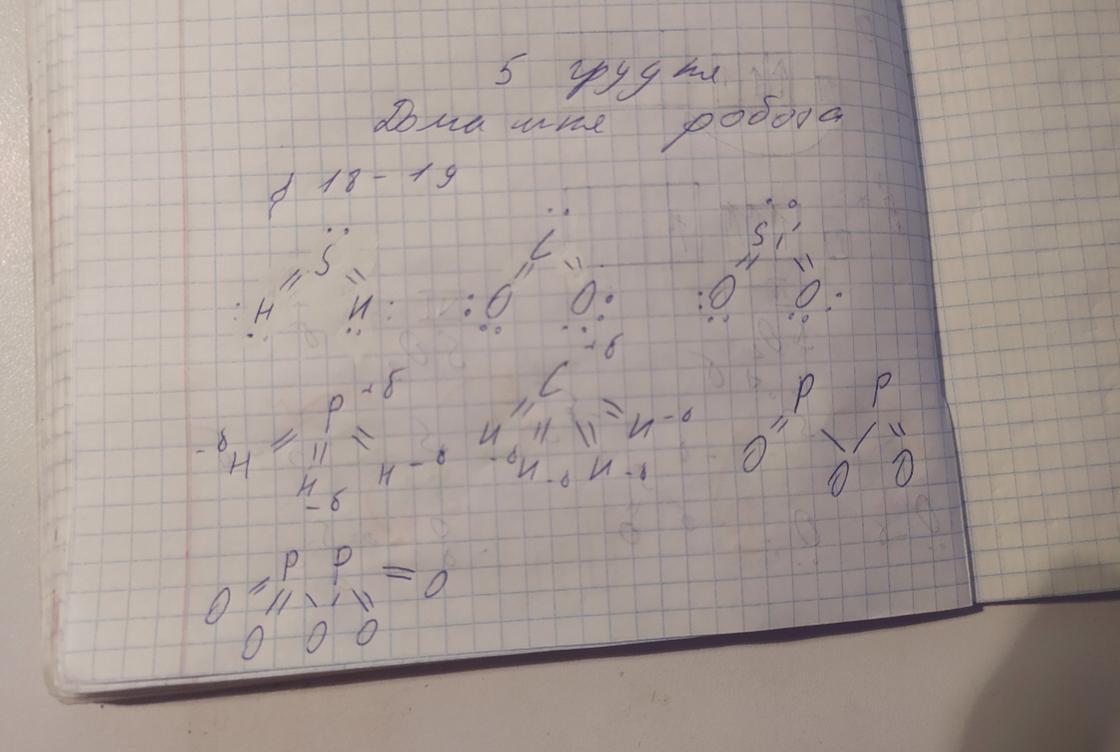 5 грудня
Домашня робота
§ 18-19
S
H H
C
O O
Si
O O
P +δ
-δ H H -δ
H -δ
C +δ
H -δ H -δ H -δ H -δ
P P
O O O
P P
O O O O O